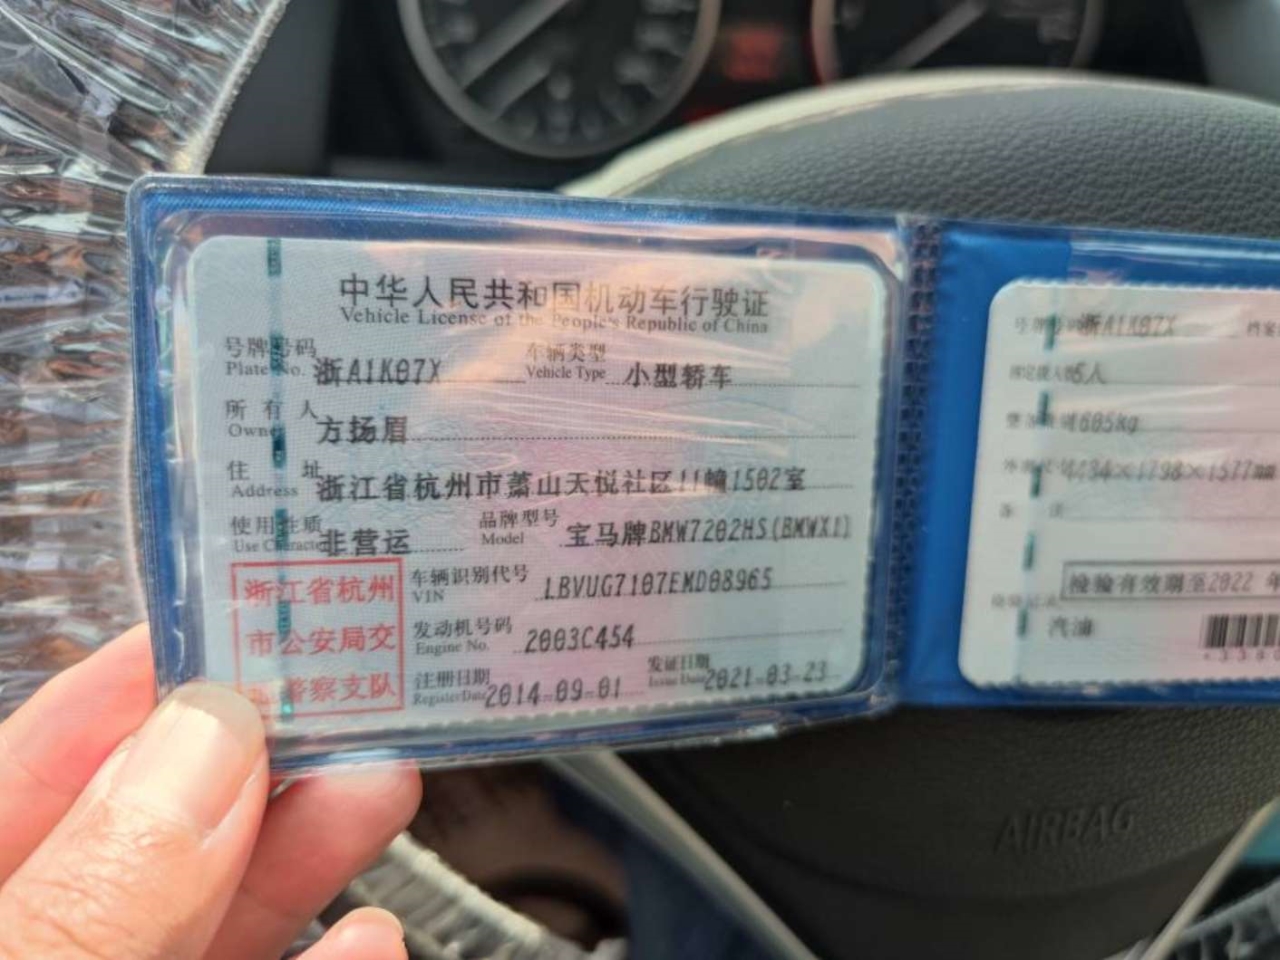 中华人民共和国机动车行驶证
Vehicle License of the People's Republic of China
号牌号码 浙A1K07X 车辆类型 小型轿车
Plate No. Vehicle Type
所有人 方扬眉
Owner
住址 浙江省杭州市萧山天悦社区11幢1502室
Address
使用性质 非营运 品牌型号 宝马牌BMW7202HS(BMWX1)
Use Character Model
浙江省杭州
市公安局交
警察支队
车辆识别代号 LBVUG7107EMD08965
VIN
发动机号码 2003C454
Engine No.
注册日期 2014-09-01 发证日期 2021-03-23
Register Date Issue Date
号牌号码 浙A1K07X 档案
5人
605kg
×1798×1577mm
备注
检验有效期至2022 年
汽油
AIRBAG